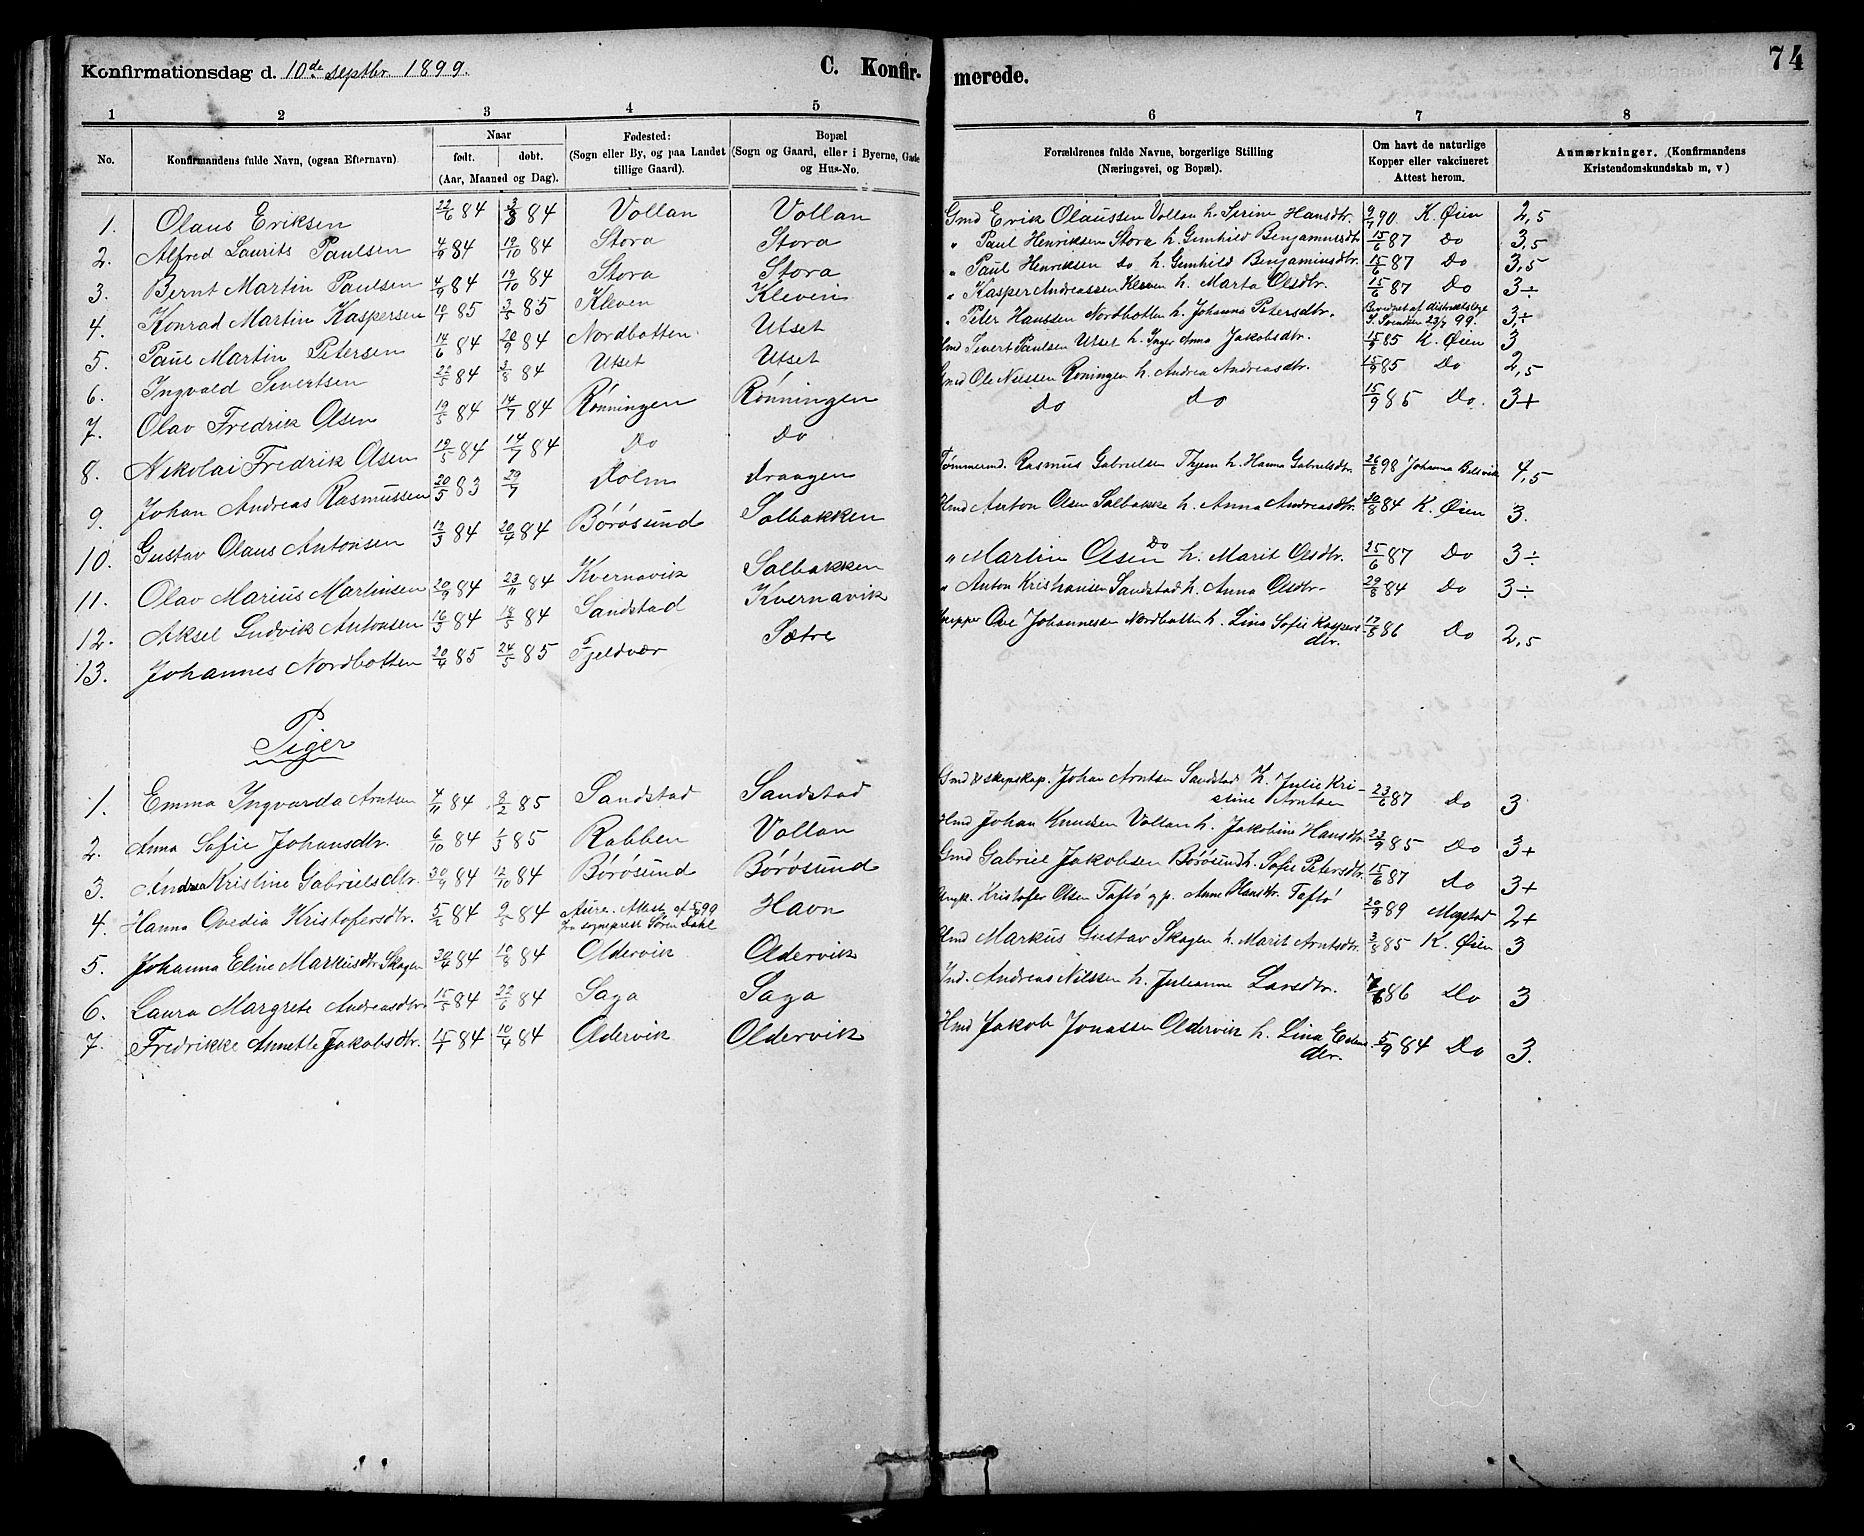 Konfirmationsdag d. 10de septbr. 1899. C. Konfirmerede. 74
1 2 3 4 5 6 7 8
No. Konfirmandens fulde Navn, (ogsaa Efternavn) Naar født. døbt. (Aar, Maaned og Dag). Fødested: (Sogn eller By, og paa Landet tillige Gaard). Bopæl (Sogn og Gaard, eller i Byerne, Gade og Hus-No. Forældrenes fulde Navne, borgerlige Stilling (Næringsvei, og Bopæl). Om havt de naturlige Kopper eller vakcineret Attest herom. Anmærkninger. (Konfirmandens Kristendomskundskab m, v)
1. Olaus Eriksen 22/6 84 3/8 84 Vollan Vollan Gmd Erik Olaussen Vollan h. Serine Hansdtr. 9/7 90 K. Øien 2,5
2. Alfred Laurits Paulsen 4/9 84 19/10 84 Stora Stora " Paul Henriksen Stora h. Gunhild Benjaminsdtr 15/6 87 Do 3,5
3. Bernt Martin Paulsen 4/9 84 19/10 84 Stora Stora " Paul Henriksen do h. Gunhild Benjaminsdtr. 15/6 87 Do 3,5
4. Konrad Martin Kaspersen 85 85 Kleven Kleven " Kasper Andreassen Kleven h. Marta Olsdtr. 15/6 87 Do 3÷
5. Paul Martin Petersen 14/6 84 20/9 84 Nordbotten Utset " Peter Hanssen Nordbotten h. Johanna Petersdtr. Bevidnet af distriktslæge 99. 3÷
6. Ingvald Sivertsen 22/5 84 3/8 84 Utset Utset Hmd Sivert Paulsen Utset h. Inger Anna Jakobsdtr. 15/9 85 K. Øien 3
7. Olav Fredrik Olsen 19/5 84 14/7 84 Rønningen Rønningen Gmd Ole Nilssen Røningen h. Andrea Andreasdtr. 15/9 85 Do 2,5
8. Nikolai Fredrik Olsen 19/5 84 14/7 84 Do Do do do 15/9 85 Do. 3+
9. Johan Andreas Rasmussen 20/5 83 29/7 Dolm draagen Tømmermd. Rasmus Gabrielsen h. Hanna Gabrielsdtr. 26/8 98 Johanna 4,5
10. Gustav Olaus Antonsen 12/3 84 20/4 84 Børøsund Salbakken Hmd Anton Olsen Salbakke h. Anna Andreasdtr. 30/8 84 K. Øien 3.
11. Olav Marius Martinsen 20/9 84 23/11 84 Kvernavik Salbakken " Martin Olsen Do h. Marit Olsdtr. 25/6 87 Do 3÷
12. Aksel Ludvik Antonsen 16/3 84 18/5 84 Sandstad Kvernavik " Anton Kristiansen Sandstad h. Anna Olsdtr. 29/8 84 Do 3÷
13. Johannes Nordbotten 20/4 85 24/5 85 Fjeldvær Sætre Skipper Ove Johannessen Nordbotten h. Lina Sofie Kaspers
dtr. 17/8 86 Do 2,5
Piger
1. Emma Ingvarda Arntsen 4/11 84 2/2 85 Sandstad Sandstad Gmd & skipskap. Johan Arntsen Sandstad h. Julie Kri-
stine Arntsen 23/6 87 Do 3
2. Anna Sofie Johansdtr. 6/10 84 1/3 85 Rabben Vollan Hmd Johan Knudsen Vollan h. Jakobine Hansdtr. 23/9 85 Do 3+
3. Andrea Kristine Gabrielsdtr. 30/9 84 12/10 84 Børøsund Børøsund Gmd Gabriel Jakobsen Børøsund h. Sofie Petersdtr. 15/6 87 Do 3+
4. Hanna Ovedia Kristofersdtr. 5/2 84 9/5 84 Aure. Attest af 99
Fra sogneprest Søren Dahl Havn Ungk. Kristofer Olsen Taftø og p. Anne Taftø 20/9 89 2+
5. Johanna Eline Markusdtr Skagen 30/4 84 10/8 84 Oldervik Oldervik Hmd Markus Gustav Skagen h. Marit Arntsdtr. 3/8 85 K. Øien 3
6. Laura Margrete Andreasdtr. 15/5 84 22/6 84 Saga Saga Ind. Andreas Nilssen h. Julianne Larsdtr. 7/6 86 Do 3
7. Fredrikke Annette Jakobsdtr. 84 84 Oldervik Oldervik Hmd Jakob Jonassen Oldervik h. Lina
dtr. 5/9 84 Do 3.